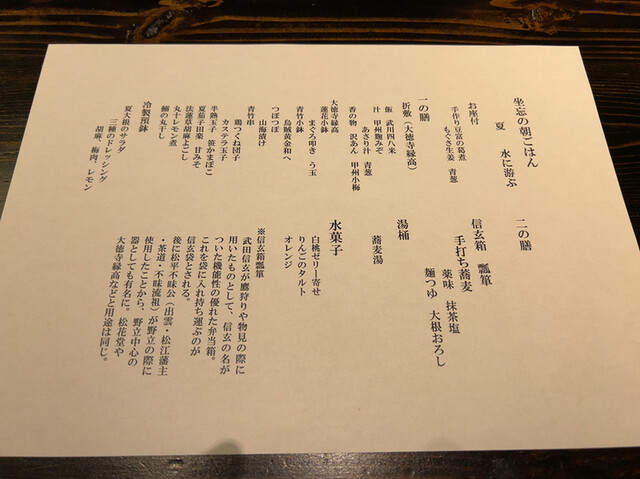 坐忘の朝ごはん
夏　水に游ぶ
お座付
手作り豆富の葛煮
もぐさ生姜　青葱
一の膳
折敷（大徳寺縁高）
飯　武川四八米
汁　甲州麹みそ
あさり汁　青葱
香の物　沢あん　甲州小梅
大徳寺縁高
蓮花小鉢
まぐろ叩き　う玉
青竹小鉢
烏賊黄金和へ
つぼつぼ
山海漬け
青竹串
鶏つくね団子
カステラ玉子
半熟玉子　笹かまぼこ
夏茄子田楽　甘みそ
法蓮草胡麻よごし
丸十レモン煮
鰯の丸干し
冷製預鉢
夏大根のサラダ
三種のドレッシング
胡麻、梅肉、レモン
二の膳
信玄箱　瓢箪
手打ち蕎麦
薬味　抹茶塩
麺つゆ　大根おろし
湯桶
蕎麦湯
水菓子
白桃ゼリー寄せ
りんごのタルト
オレンジ
※信玄箱瓢箪
武田信玄が鷹狩りや物見の際に
用いたものとして、信玄の名が
ついた機能性の優れた弁当箱。
これを袋に入れ持ち運ぶのが
信玄袋とされる。
後に松平不昧公（出雲・松江藩主
・茶道・不昧流祖）が野立の際に
使用したことから、野立中心の
器としても有名に。松花堂や
大徳寺縁高などと用途は同じ。